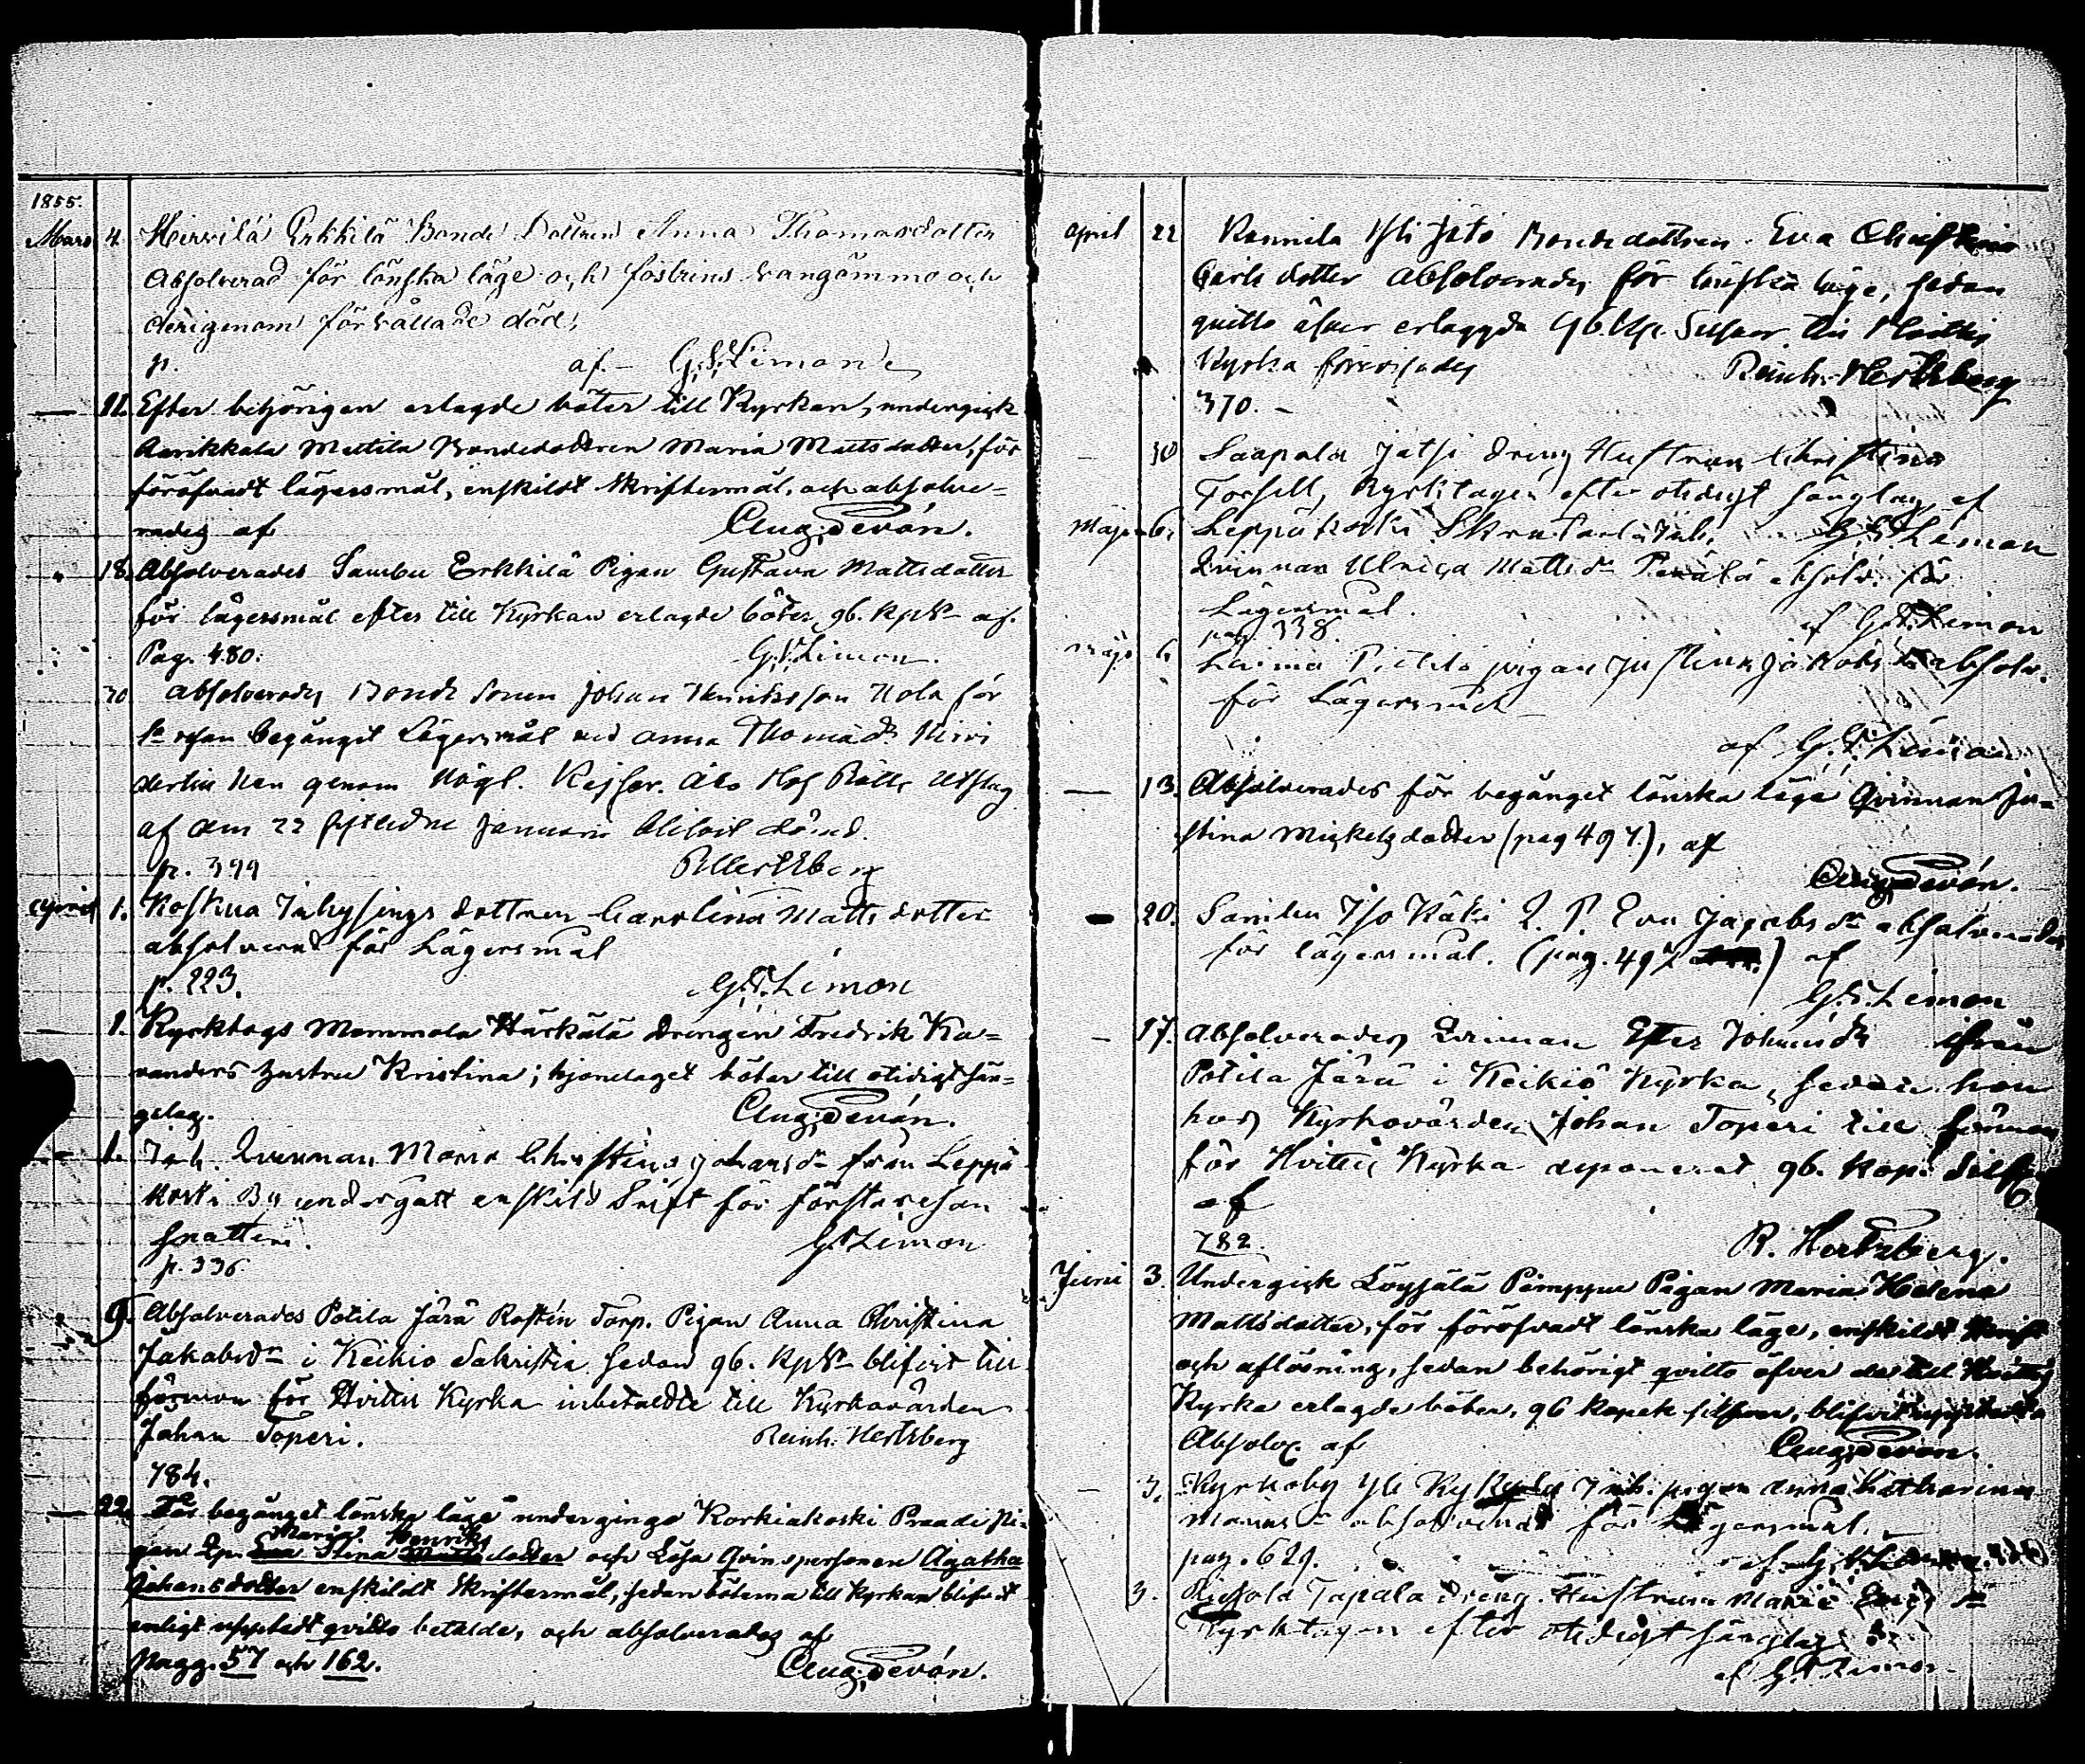 1855.
Mars 4. Hirvilä Erkkilä Bonde Dottren Anna Thomasdotter
Absolverad för lönska läge och fostrins vangömmo och
derigenom förvållade död,
p. af - G. S. Limon
— 11. Efter behörigen erlagde böter till Kyrkan, undergick
Mattila Bondedottren Maria Mattsdotter, för
föröfvadt lägersmål, enskildt skriftermål, och absolve-
rades af Aug. Devón.
" 18. Absolverades Sambu Erkkilä Pigan Gustava Mattsdotter
för lägersmål efter till Kyrkan erlagde böter, 96. kop Sr af.
Pag. 480. G. S. Limon.
30 Absolverades Bonde Sonen Johan Henriksson Uola för
1a resan begånget Lägersmål med Anna Thomæ dr Hirvi
hvartill han genom Högl. Kejser. Åbo Hof Rätts Utslag
af den 22 sistledne Januarii blifvit dömd.
p. 399 R Hertzberg
April 1. Koskua Inhysings dottren Carolina Matts dotter
absolverad för Lägersmål
p. 223. G. S. Limon
— 1. Kyrktogs Mommola Härkälä Drengen Fredrik Ka-
randers hustru Kristina; hjonelaget böter till otidigt sän-
gelag. Aug. Devón.
— 1. Inh. Qvinnan Maria Christina Johansdr från Leppä
koski By undergått enskild Skrift för första resan
snatteri. G. S. Limon
p. 336.
9. Absolverades Potila Järä Rostin Torp. Pigan Anna Christina
Jakobsdr i Keikio Sakristia sedan 96. kop Sr blifvit till
förmon för Hvittis Kyrka inbetaldte till Kyrkovärden
Johan Toperi. Reinh. Hertzberg
784.
— 22. För begånget lönska läge undergingo Korkiakoski Praadi Pi-
Maria Henriks
gan Qp. Eva Stina Matts dotter och Lösa Qvinspersonen Agatha
Johansdotter enskildt skriftermål, sedan böterna till Kyrkan blifvit
enligt uppstedt qvitto betalde, och absolverades af
Pagg. 57 och 162. Aug. Devón.
April 22 Rannila Yli Jato Bonde dottren Eva Christina
Carls dotter absolverades för lönska läge, sedan
qvitto öfver erlaggda 96. kop. Silfver till Hvittis
Kyrka företeddes Reinh. Hertzberg
370. -
— 30 Saapala Jatsi Dreng Hustrun Christina
Forsell, Kyrktagen efter otidigt sänglag, af
G. S. Limon
Maji 6. Leppäkoski Inh.
Qvinnan Ulrica Matts dr absolv. för
Lägersmål. af G. S. Limon
pag. 338.
Maji 6 Laima Pietilä pigan Justina Jakobs dr absolv.
för Lägersmål
af G. S. Limon
— 13. Absolverades för begånget lönska läge Qvinnan Ju-
stina Mickelsdotter (pag 497.), af
Aug. Devón.
— 20. Samba Iso Käki Q. P. Eva Jacobs dr absolverades
för lägersmål. (pag. 497 ) af
G. S. Limon
— 17. Absolverades Qvinnan Ester Johansdr ifrån
Potila Järä i Keikiö Kyrka, sedan hon
hos Kyrkovärden Johan Toperi till förmon
för Hvittis Kyrka deponerat 96. Kop. Silfv.
af
782. R. Hertzberg.
Juni 3. Undergick Löysälä Pimppu Pigan Maria Helena
Mattsdotter, för föröfvadt lönska läge, enskildt skrift
och aflösning, sedan behörigt qvitto öfver de till Hvittis
Kyrka erlagde böter, 96 kopek silfver, blifvit uppstedt
Absolv. af Aug. Devón.
— 3. Kyrkoby Yli Inh. pigan Anna Katharina
absolverad för Lägersmål.
pag. 629. af G. S. Limon
3. Tapala Dreng. Hustrun Maria dr
Kyrktagen efter otidigt sänglag
af G. S. Limon